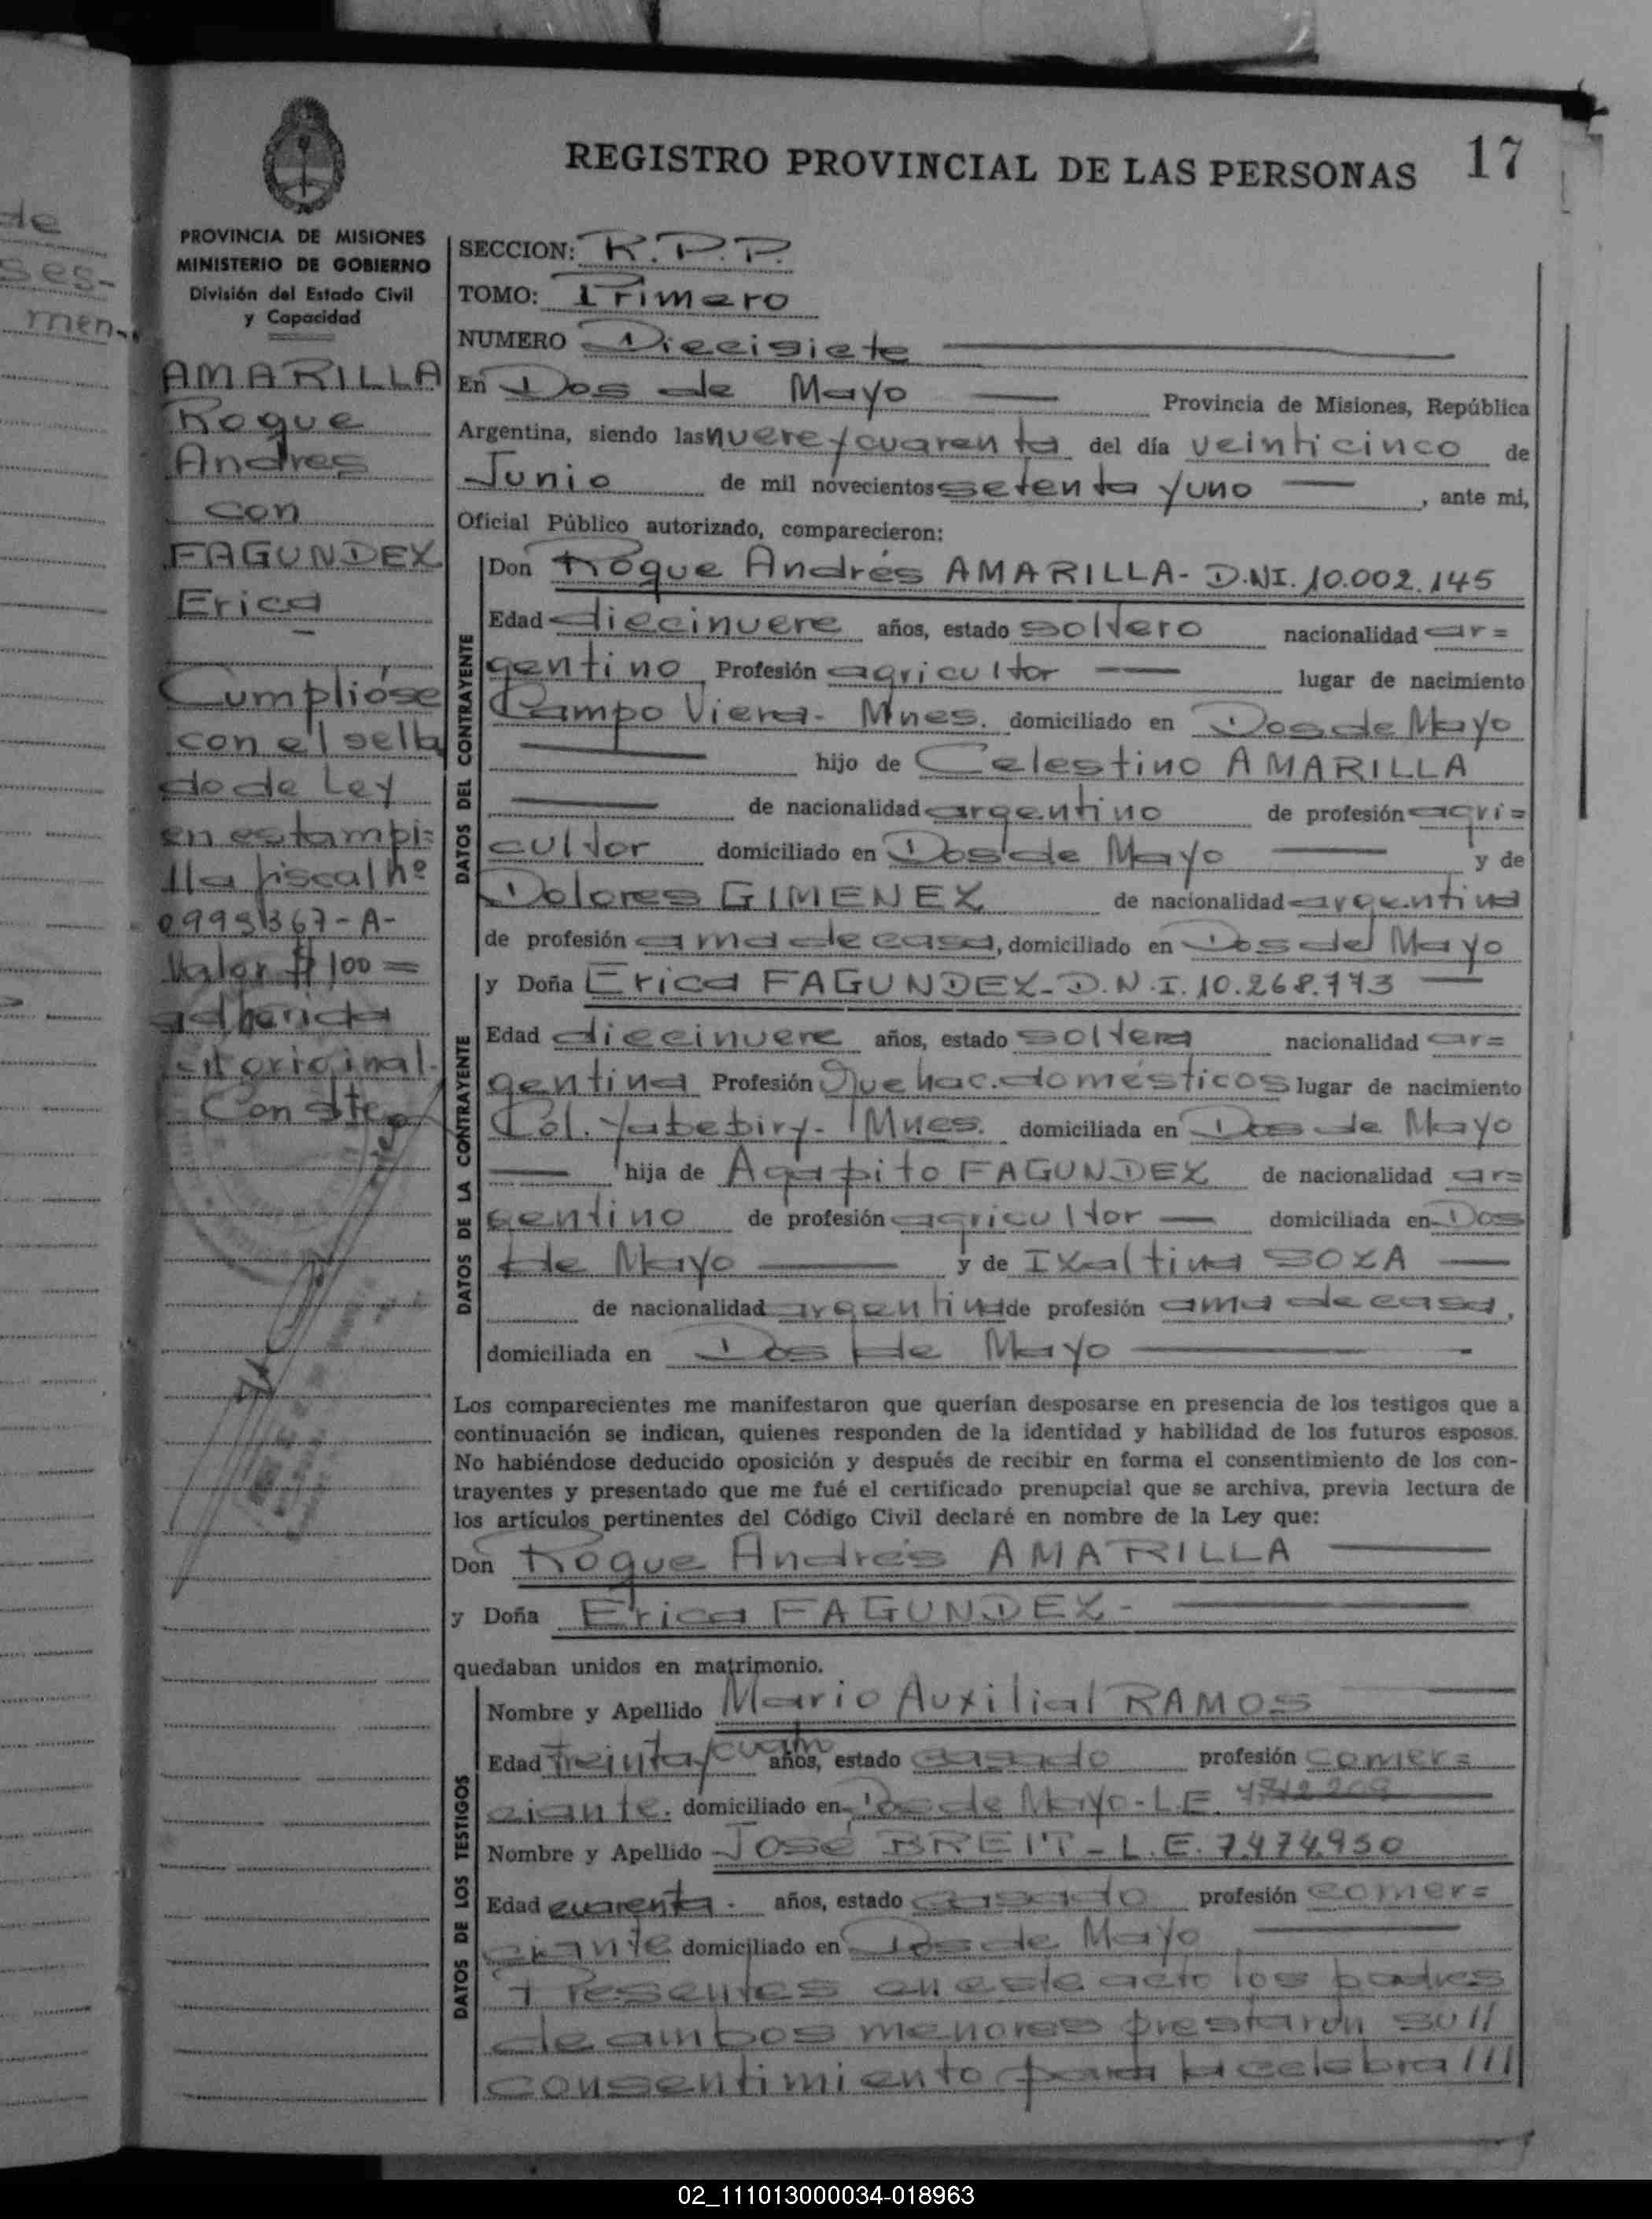 REGISTRO PROVINCIAL DE LAS PERSONAS 17
PROVINCIA DE MISIONES
MINISTERIO DE GOBIERNO
División del Estado Civil
y Capacidad
AMARILLA
Roque
Andres
con
FAGUNDEZ
Erica
Cumplióse
con el sella
do de Ley
en estampi=
lla fiscal Nº
0995367-A-
Valor $ 100=
adherida
en original.
Conste
SECCION: R.P.P.
TOMO: Primero
NUMERO Diecisiete
En Dos de Mayo Provincia de Misiones, República
Argentina, siendo las nueve y cuarenta del día veinticinco de
Junio de mil novecientos setenta y uno, ante mi,
Oficial Público autorizado, comparecieron:
DATOS DEL CONTRAYENTE
Don Roque Andrés AMARILLA- D.NI. 10.002.145
Edad diecinueve años, estado soltero nacionalidad ar=
gentino, Profesión agricultor lugar de nacimiento
Campo Viera- Mnes. domiciliado en Dos de Mayo
hijo de Celestino AMARILLA
de nacionalidad argentino de profesión agri=
cultor domiciliado en Dos de Mayo y de
Dolores GIMENEZ de nacionalidad argentina
de profesión ama de casa, domiciliado en Dos de Mayo
DATOS DE LA CONTRAYENTE
y Doña Erica FAGUNDEZ- D.N.I. 10.268.773
Edad diecinueve años, estado soltera nacionalidad ar=
gentina Profesión Quehac. domésticos lugar de nacimiento
Col. Yabebiry- Mnes. domiciliada en Dos de Mayo
hija de Agapito FAGUNDEZ de nacionalidad ar=
gentino de profesión agricultor domiciliada en Dos
de Mayo y de Ixaltina SOZA
de nacionalidad argentina de profesión ama de casa,
domiciliada en Dos de Mayo
Los comparecientes me manifestaron que querían desposarse en presencia de los testigos que a
continuación se indican, quienes responden de la identidad y habilidad de los futuros esposos.
No habiéndose deducido oposición y después de recibir en forma el consentimiento de los con-
trayentes y presentado que me fué el certificado prenupcial que se archiva, previa lectura de
los artículos pertinentes del Código Civil declaré en nombre de la Ley que:
Don Roque Andrés AMARILLA
y Doña Erica FAGUNDEZ-
quedaban unidos en matrimonio.
DATOS DE LOS TESTIGOS
Nombre y Apellido Mario Auxilial RAMOS
Edad treinta y cuatro años, estado casado profesión comer=
ciante. domiciliado en Dos de Mayo-L.E.
Nombre y Apellido José BREIT- L.E. 7.474.950
Edad cuarenta. años, estado casado profesión comer=
ciante domiciliado en Dos de Mayo
Presentes en este acto los padres
de ambos menores prestaron su//
consentimiento para la celebra///
02_111013000034-018963